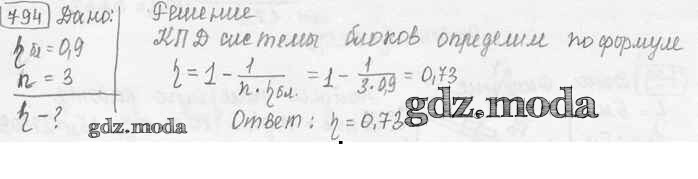 794 Дано: Решение
ηбл=0,9 КПД системы блоков определим по формуле
n = 3 η = 1 - 1/(n·ηбл.) = 1 - 1/(3·0,9) = 0,73
η - ? Ответ: η = 0,73
gdz.moda
gdz.moda